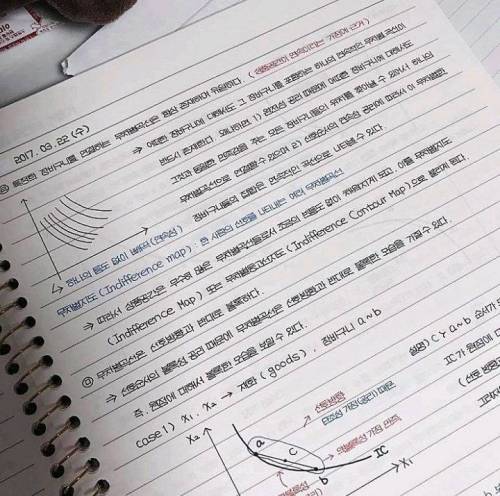 2017. 03. 22 (수)
특정한 장바구니를 연결하는 무차별곡선은 항상 존재하며 유일하다. (상품공간이 연속이라는 가정에 근거)
→ 어떠한 장바구니에 대해서도 그 장바구니를 포함하는 하나의 연속적인 무차별곡선이
반드시 존재한다. 왜냐하면 1) 완전성 공리 때문에 어떠한 장바구니에 대해서도
그것과 동일한 만족감을 주는 모든 장바구니들의 위치를 찾아낼 수 있어서 하나의
무차별곡선으로 연결할 수 있으며 2) 선호순서의 연속성 공리에 따라서 이 무차별한
장바구니들의 집합은 연속적인 곡선으로 나타낼 수 있다.
↳ 하나의 틈도 없이 빼곡(연속성)
무차별지도 (Indifference map) : 한 사람의 선호를 나타내는 여러 무차별곡선
⇒ 따라서 상품공간은 무수히 많은 무차별곡선들로서 조금의 빈틈도 없이 채워지게 되고, 이를 무차별지도
(Indifference Map) 또는 무차별등고선지도 (Indifference Contour Map)으로 불리게 된다.
무차별곡선은 선호방향과 반대로 볼록하다.
⇒ 선호순서의 볼록성 공리 때문에 무차별곡선은 선호방향과 반대로 볼록한 모습을 가질 수 있다.
즉, 원점에 대해서 볼록한 모습을 보일 수 있다.
case 1) X₁, X₂ → 재화 (goods), 장바구니 a~b
X₂
↗ 선호방향
단조성 가정(공리) 때문
a
c
b
IC
X₁
볼록성 가정 만족
설명) C > a~b 순서가
IC가 원점에 대
(선호 방향
그런데